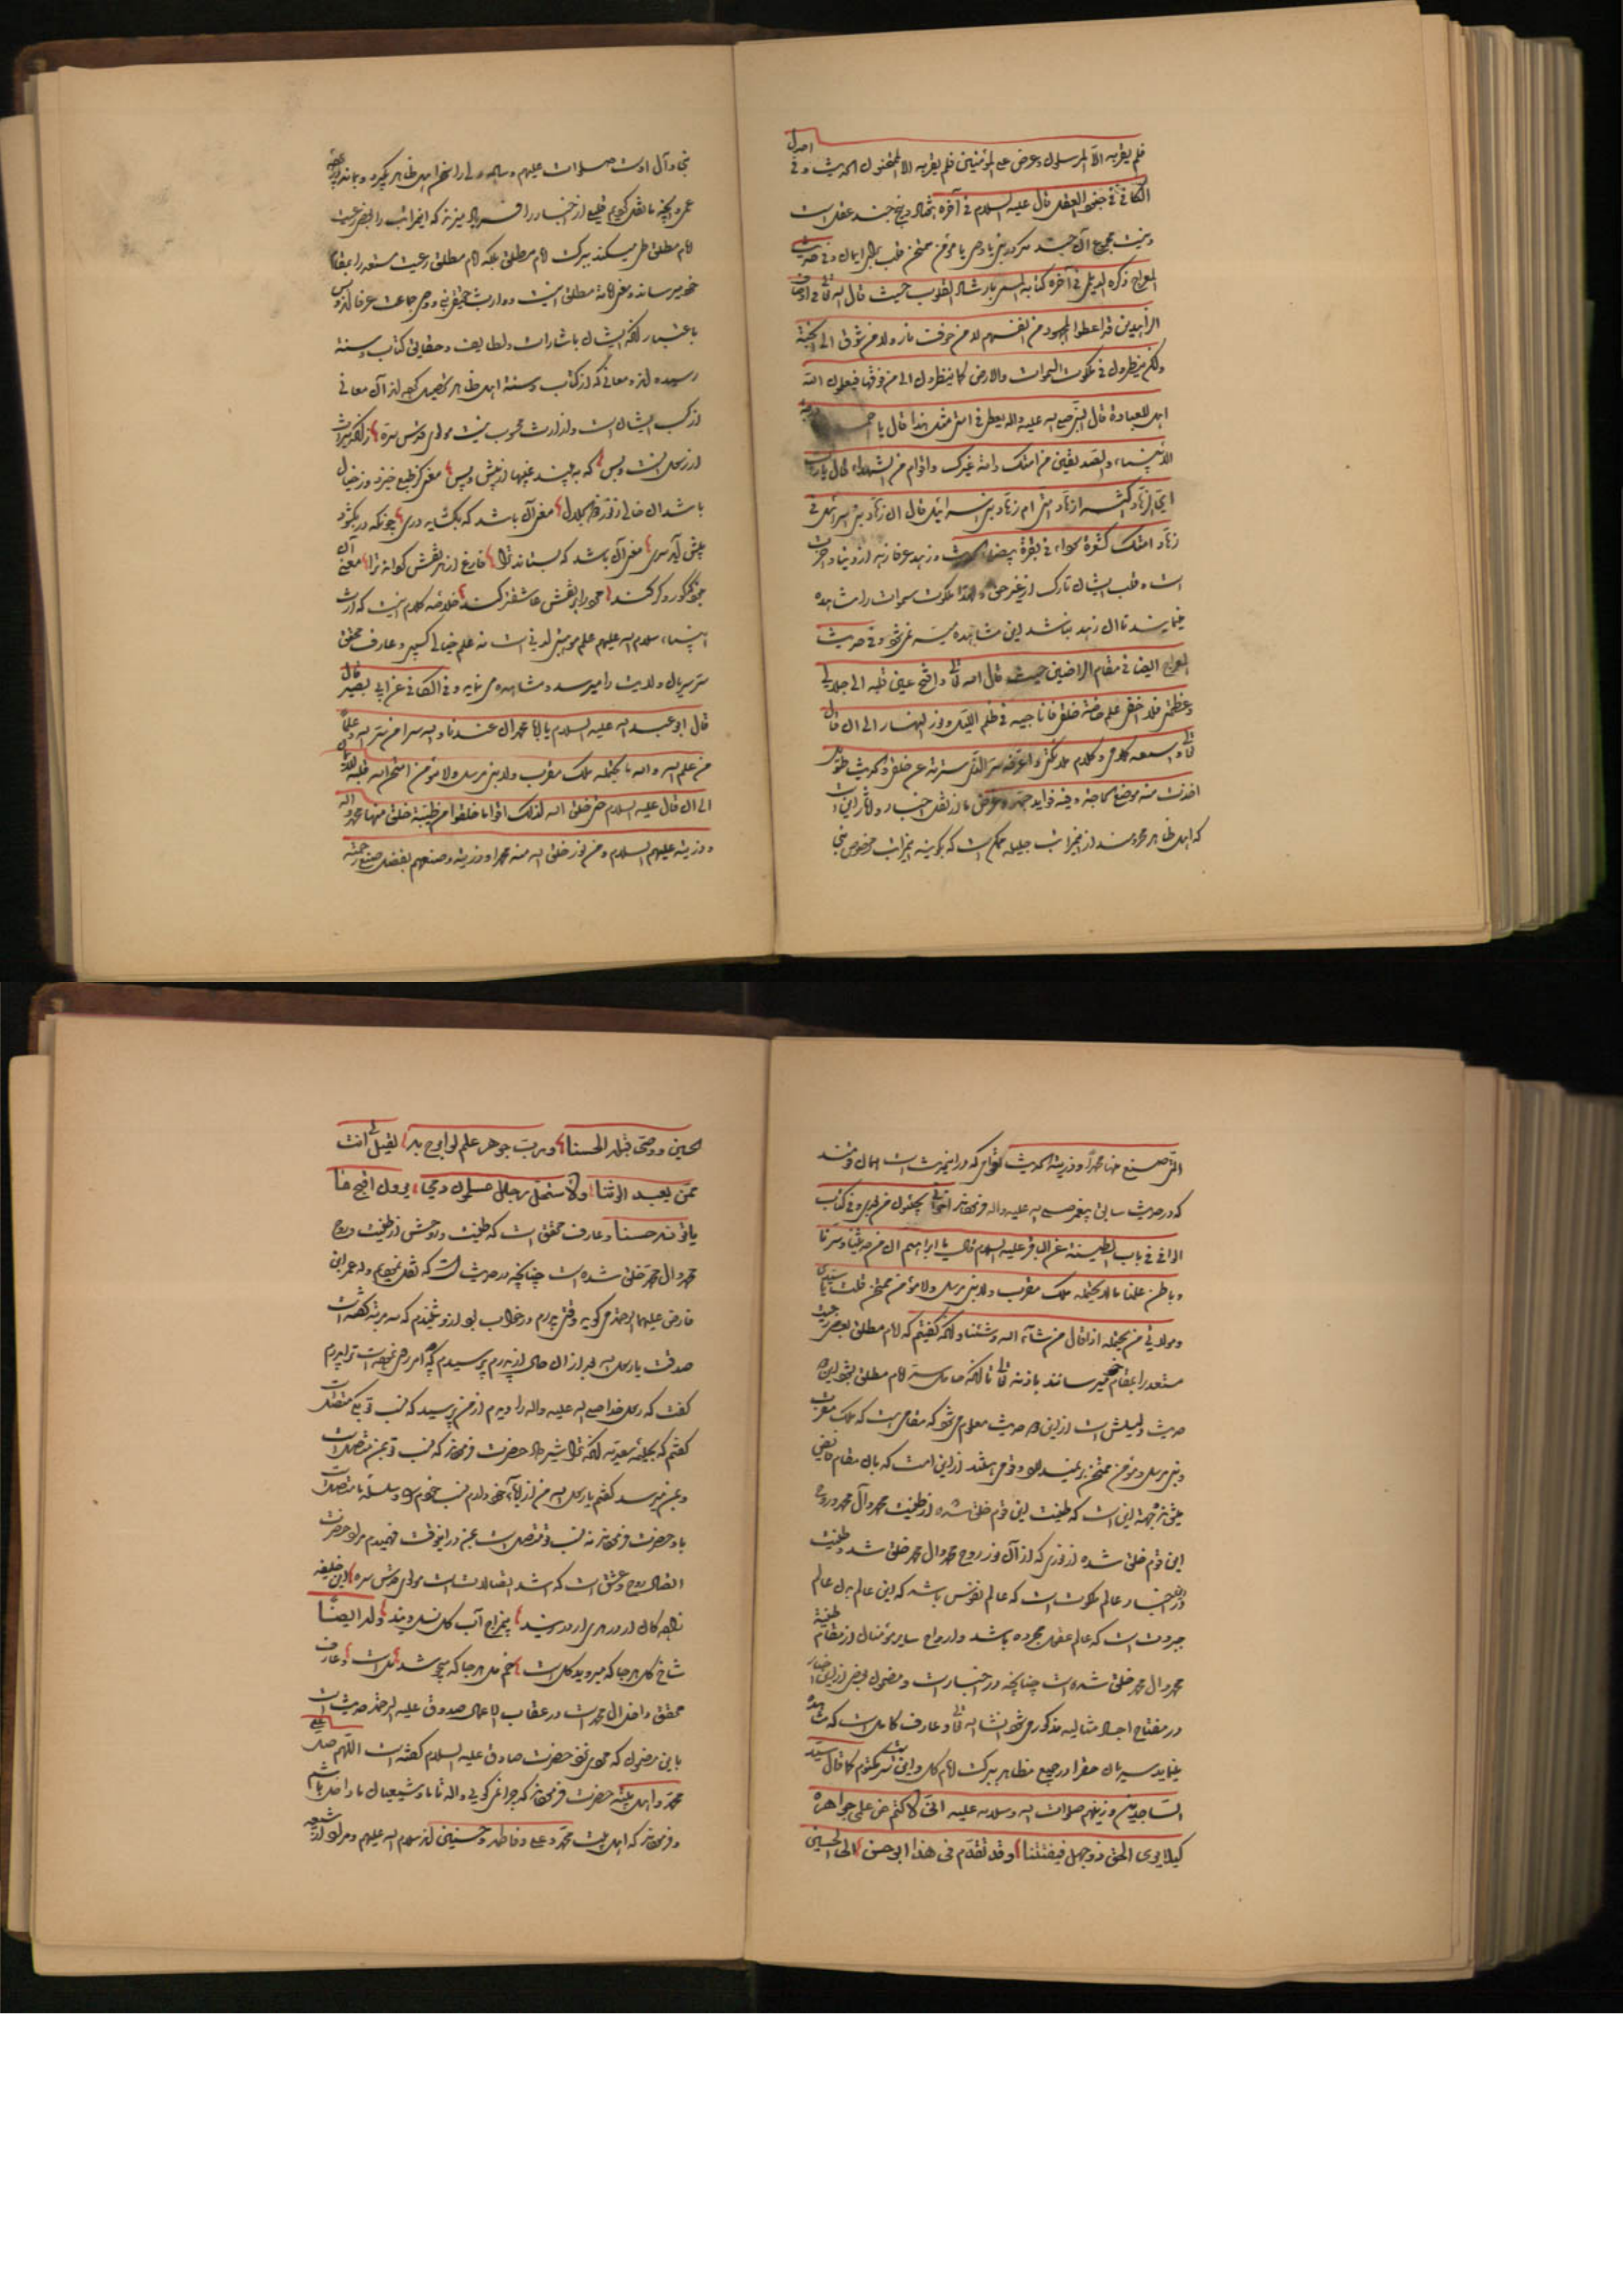 فلم یقر به الا المرسلون و عرض علی المؤمنین فلم یقر به الا الممتحنون الحدیث و فی اصول
الکافی فی جنود العقل قال علیه السلام فی آخره هفتاد و پنج جند عقل است
و نیست مجموع آن جند مگر در نبی یا وصی یا مؤمن ممتحن قلب برای ایمان و در حدیث
المعراج ذکره الدیلمی فی آخر کتابه المسمی بارشاد القلوب حیث قال الله تعالی فی اوصاف
الزاهدین قد اعطوا المجهود من انفسهم لا من خوف نار و لا من شوق الی الجنة
و لکن ینظرون فی ملکوت السموات و الارض کما ینظرون الی من فوقها فیعلمون ان الله
اهل للعبادة قال النبی صلی الله علیه و اله یعطی فی امتی مثل هذا قال یا احمد
الانبیاء و الصدیقین من امتک و امة غیرک و اقوام من الشهداء قال یا رب
ای الزهاد اکثر ازهاد امتی ام زهاد بنی اسرائیل قال ان زهاد بنی اسرائیل فی
زهاد امتک کشعرة سوداء فی بقرة بیضاء الحدیث و زهد عرفا زهد از دنیا و آخرت
است و قلب ایشان تارک از غیر حق و لهذا ملکوت سموات را مشاهده
مینمایند تا آن زهد نباشد این مشاهده میسر نمی‌شود و در حدیث
المعراج ایضا فی مقام الراضین حیث قال الله تعالی و افتح عین قلبه الی جلالی
و عظمتی فلا اخفی علیه خاصة خلقی فاناجیه فی ظلم اللیل و نور النهار الی ان قال
تعالی و اسمعه کلامی و کلام ملائکتی و اعرفه سر الذی سترته عن خلقی الحدیث طویل
اخذت منه موضع الحاجة و فیه فواید جمة و غرض ما از نقل اخبار و آثار این است
که اهل ظاهر محرومند از این مراتب جلیله ممکن است که بگویند این مراتب مخصوص نبی
نبی و آل اوست صلوات علیهم و سلامه ولی را سخن اهل ظاهر بگیرد و بماند
عمر و آنچه ما نقل کردیم قلیلی از اخبار را فریاد میزند که این مراتب را بعضی رعیت
امام مطلق طی میکنند ببرکت امام مطلق بلکه امام مطلق رعیت مستعد را بمقام
خود میرساند و معنی امامة مطلق اینست و وارث حقیقی نبی و وصی جماعت عرفا اند و بس
باعتبار آنکه ایشان باشارات و لطایف و حقایق کتاب و سنة
رسیده اند و معانی که از کتاب و سنة اهل ظاهر تحصیل کرده اند آن معانی
از کسب ایشان است و از ارث محسوب نیست مولوی قدس سره
از رسل اینست و بس که به بیند غیبها از پیش و پس مغز کز طبع خیزد وز خیال
باشد آن خالی ز نور ذو الجلال مغز آن باشد که بگشاید دری چونکه در بگشود
پیش آید سری مغز آن باشد که بستاند ترا فارغ از نقش گرداند ترا معنی آن
نبود که کور و کر کند مرد را بر نقش عاشقتر کند خلاصه کلام اینست که ارث
انبیاء سلام الله علیهم علم موهبتی لدنی است نه علم خیالی کسبی و عارف محقق
سر سریان ولایت را میرسد و مشاهده می نماید و فی الکافی عن ابی بصیر قال
قال ابو عبد الله علیه السلام یا ابا محمد ان عندنا و الله سرا من سر الله و علما
من علم الله و الله ما یحتمله ملک مقرب و لا نبی مرسل و لا مؤمن امتحن الله قلبه للایمان
الی ان قال علیه السلام حتی خلق الله لذلک اقواما خلقوا من طینة خلق منها محمد و اله
و ذریته علیهم السلام و من نور خلق الله منه محمدا و ذریته و صنعهم بفضل صنع رحمته
التی صنع منها محمدا و ذریته الحدیث اقوامی که در این حدیث است همان قومند
که در حدیث سابق پیغمبر صلی الله علیه و اله فرموده اند اخوانی یجیئون من بعدی و فی کتاب
الوافی فی باب الطینة عن الباقر علیه السلام قال یا ابراهیم ان من حدیثنا و سرنا
و باطن علمنا ما لا یحتمله ملک مقرب و لا نبی مرسل و لا مؤمن ممتحن قلت یا سیدی
و مولای فمن یحتمله اذا قال من شاء الله و شئنا و آنکه گفتیم که امام مطلق بعضی رعیت
مستعد را بمقام خود میرساند باذن الله تعالی تا آنکه حامل سر امام مطلق میشود این
حدیث دلیلش است از این دو حدیث معلوم می شود که مقامی است که ملک مقرب
و نبی مرسل و مؤمن ممتحن نرسیده اند و قومی هستند از این امت که بان مقام فایض
میشوند بجهة این است که طینت این قوم خلق شده از طینت محمد و آل محمد و روح
این قوم خلق شده از نوری که از آن نور روح محمد و ال محمد خلق شد و طینت
در این اخبار عالم ملکوت است که عالم نفوس باشد که این عالم بدن عالم
جبروت است که عالم عقول مجرده باشد و ارواح سایر مؤمنان از مقام طینة
محمد و ال محمد خلق شده است چنانچه در اخبار است و مضمون بعضی از این اخبار
در مفتاح اجساد مثالیه مذکور می شود انشاء الله تعالی و عارف کامل است که مشاهده
مینماید سریان حق را در جمیع مظاهر ببرکت امام کل و این است سر مکتوم کما قال سید
الساجدین و زینهم صلوات الله و سلامه علیه انی لاکتم من علمی جواهره
کیلا یری الحق ذو جهل فیفتتنا و قد تقدم فی هذا ابو حسن الی الحسین
الحسین و وصی قبله الحسنا و رب جوهر علم لو ابوح به لقیل لی انت
ممن یعبد الوثنا و لاستحل رجال مسلمون دمی یرون اقبح ما
یاتونه حسنا و عارف محقق است که طینت و روحش از طینت و روح
محمد و ال محمد خلق شده است چنانچه در حدیث است که نقل نمودیم و لذا عمر ابن
فارض علیه الرحمة می گوید وقتی پدرم در خواب بود از او شنیدم که سه مرتبه گفته است
صدقت یا رسول الله بعد از آن حال از پدرم پرسیدم که امر وضع نموده است ترا پدرم
گفت که رسول خدا صلی الله علیه و اله را دیدم از من پرسید که نسب تو بکه متصل است
گفتم که بحلیمه سعدیه آنکه ترا شیر داد حضرت فرموده اند که نسب تو بمن متصل است
و بمن میرسد گفتم یا رسول الله من از آباء خود دارم نسب خودم و سلسله ما متصل است
باو حضرت فرموده اند نه نسب تو متصل است بمن در اینوقت فهمیدم مراد حضرت
اتصال روح و عشق است که اشد اتصالات است مولوی قدس سره این خلیفه
زادگان از در هری ار از ری اند بی مزاج آب و گل نسل وی اند و له ایضا
شاخ گل هر جا که میروید گل است خم مل هر جا که میجوشد مل است و عارف
محقق داخل آل محمد است در عقاب الاعمال صدوق علیه الرحمة حدیث است
باین مضمون که مردی نزد حضرت صادق علیه السلام گفته است اللهم صل علی
محمد و اهل بیته حضرت فرموده اند که چرا نمی گویی و اله تا ما و شیعیان ما داخل باشیم
و فرموده اند که اهل بیت محمد و علی و فاطمه و حسنین اند سلام الله علیهم و مراد از شیعه